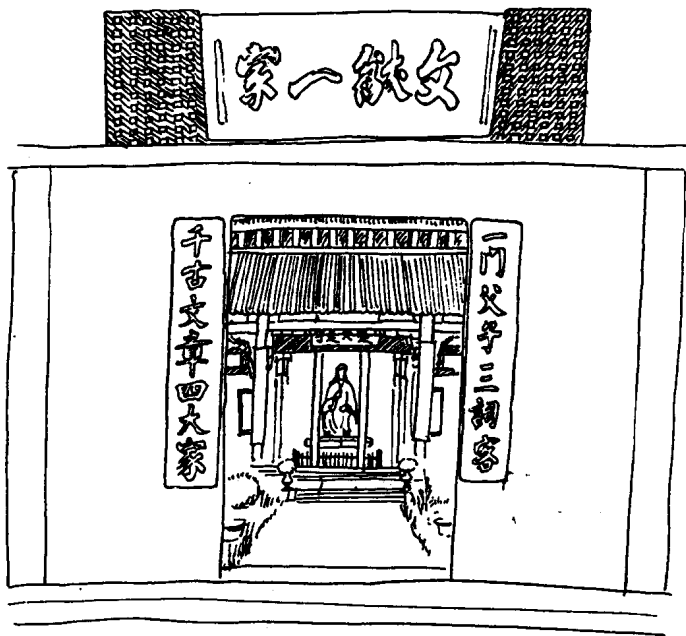 文献一家
一门父子三詞客
千古文章四大家